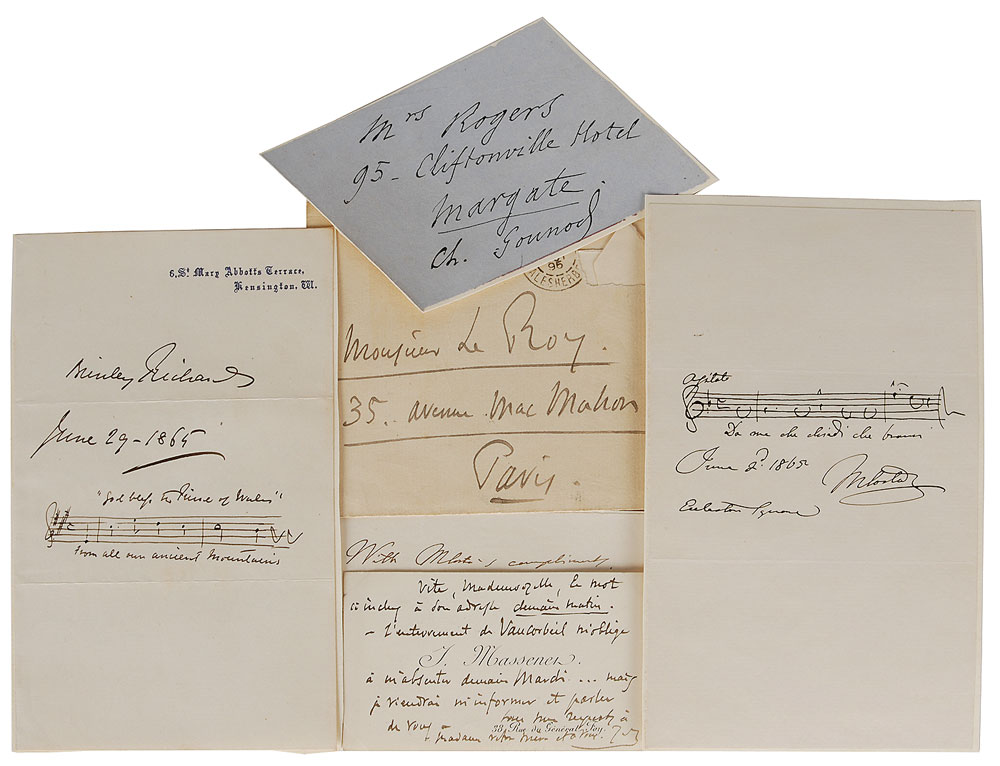 Mrs Rogers
95 - Cliftonville Hotel
Margate.
Ch. Gounod
6, St Mary Abbotts Terrace,
Kensington, W.
Brinley Richards
June 29 - 1865
"God bless the Prince of Wales"
From all our ancient Mountains
95
ALESHERB
Monsieur Le Roy.
35. avenue Mac Mahon
Paris.
With compliments
Vite, Mademoiselle, le mot
à son adresse demain matin.
- l'enterrement de Vaucorbeil m'oblige
J. Massenet.
à m'absenter demain Mardi ... mais
je viendrai m'informer et parler
de vous -
tous mes respects à
38, Rue du Général Foy.
madame votre mère
agitato
Da me che chiedi che brami
June 2d. 1865
MCosta
Eccleston Square